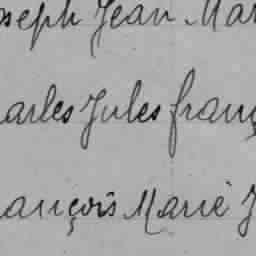 oseph Jean Mar
arles Jules franç
ançois Marie J